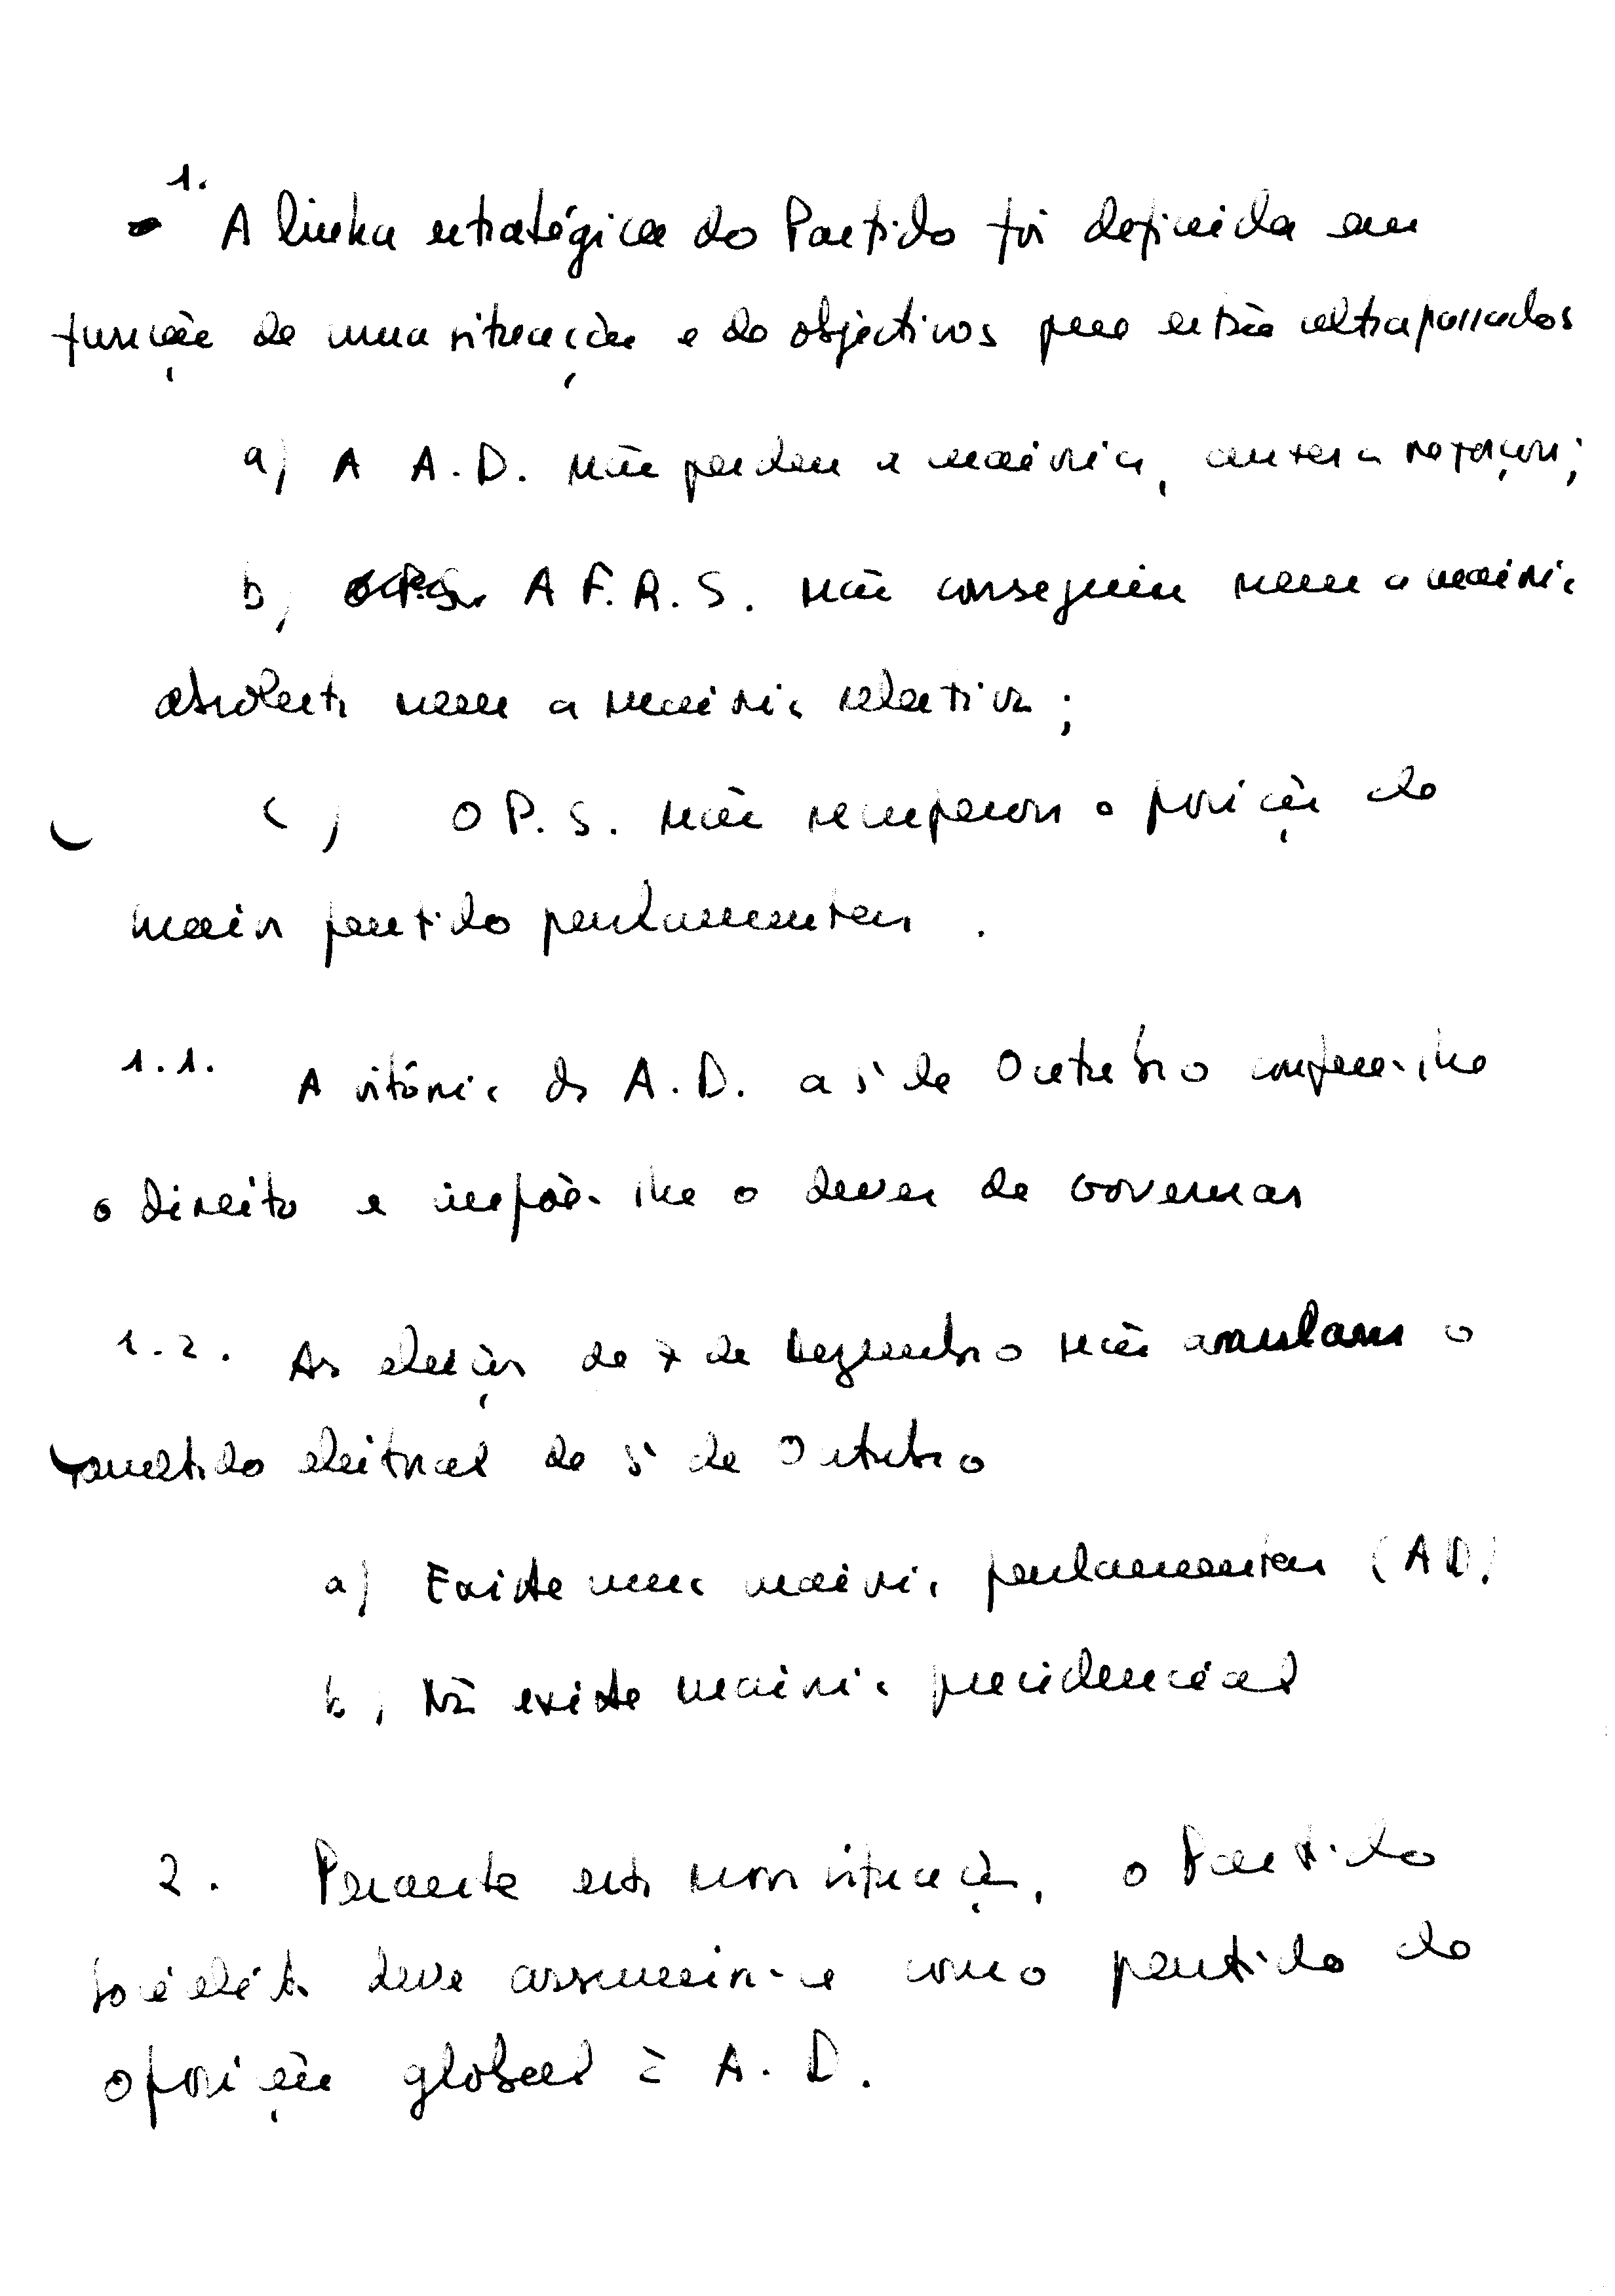 1.
A linha estratégica do Partido foi definida em
função de uma situação e de objectivos que estão ultrapassados
a) A A.D. não perdeu a maioria, antes a reforçou;
b) A F.R.S. não conseguiu nem a maioria
absoluta nem a maioria relativa;
c) O P.S. não recuperou a posição de
maior partido parlamentar.
1.1. A vitória da A.D. a 5 de Outubro confere-lhe
o direito e impõe-lhe o dever de governar
1.2. As eleições de 7 de Dezembro não anulam o
resultado eleitoral de 5 de Outubro
a) Existe uma maioria parlamentar (AD)
b) Não existe maioria presidencial
2. Perante esta nova situação, o Partido
Socialista deve assumir-se como partido de
oposição global à A.D.